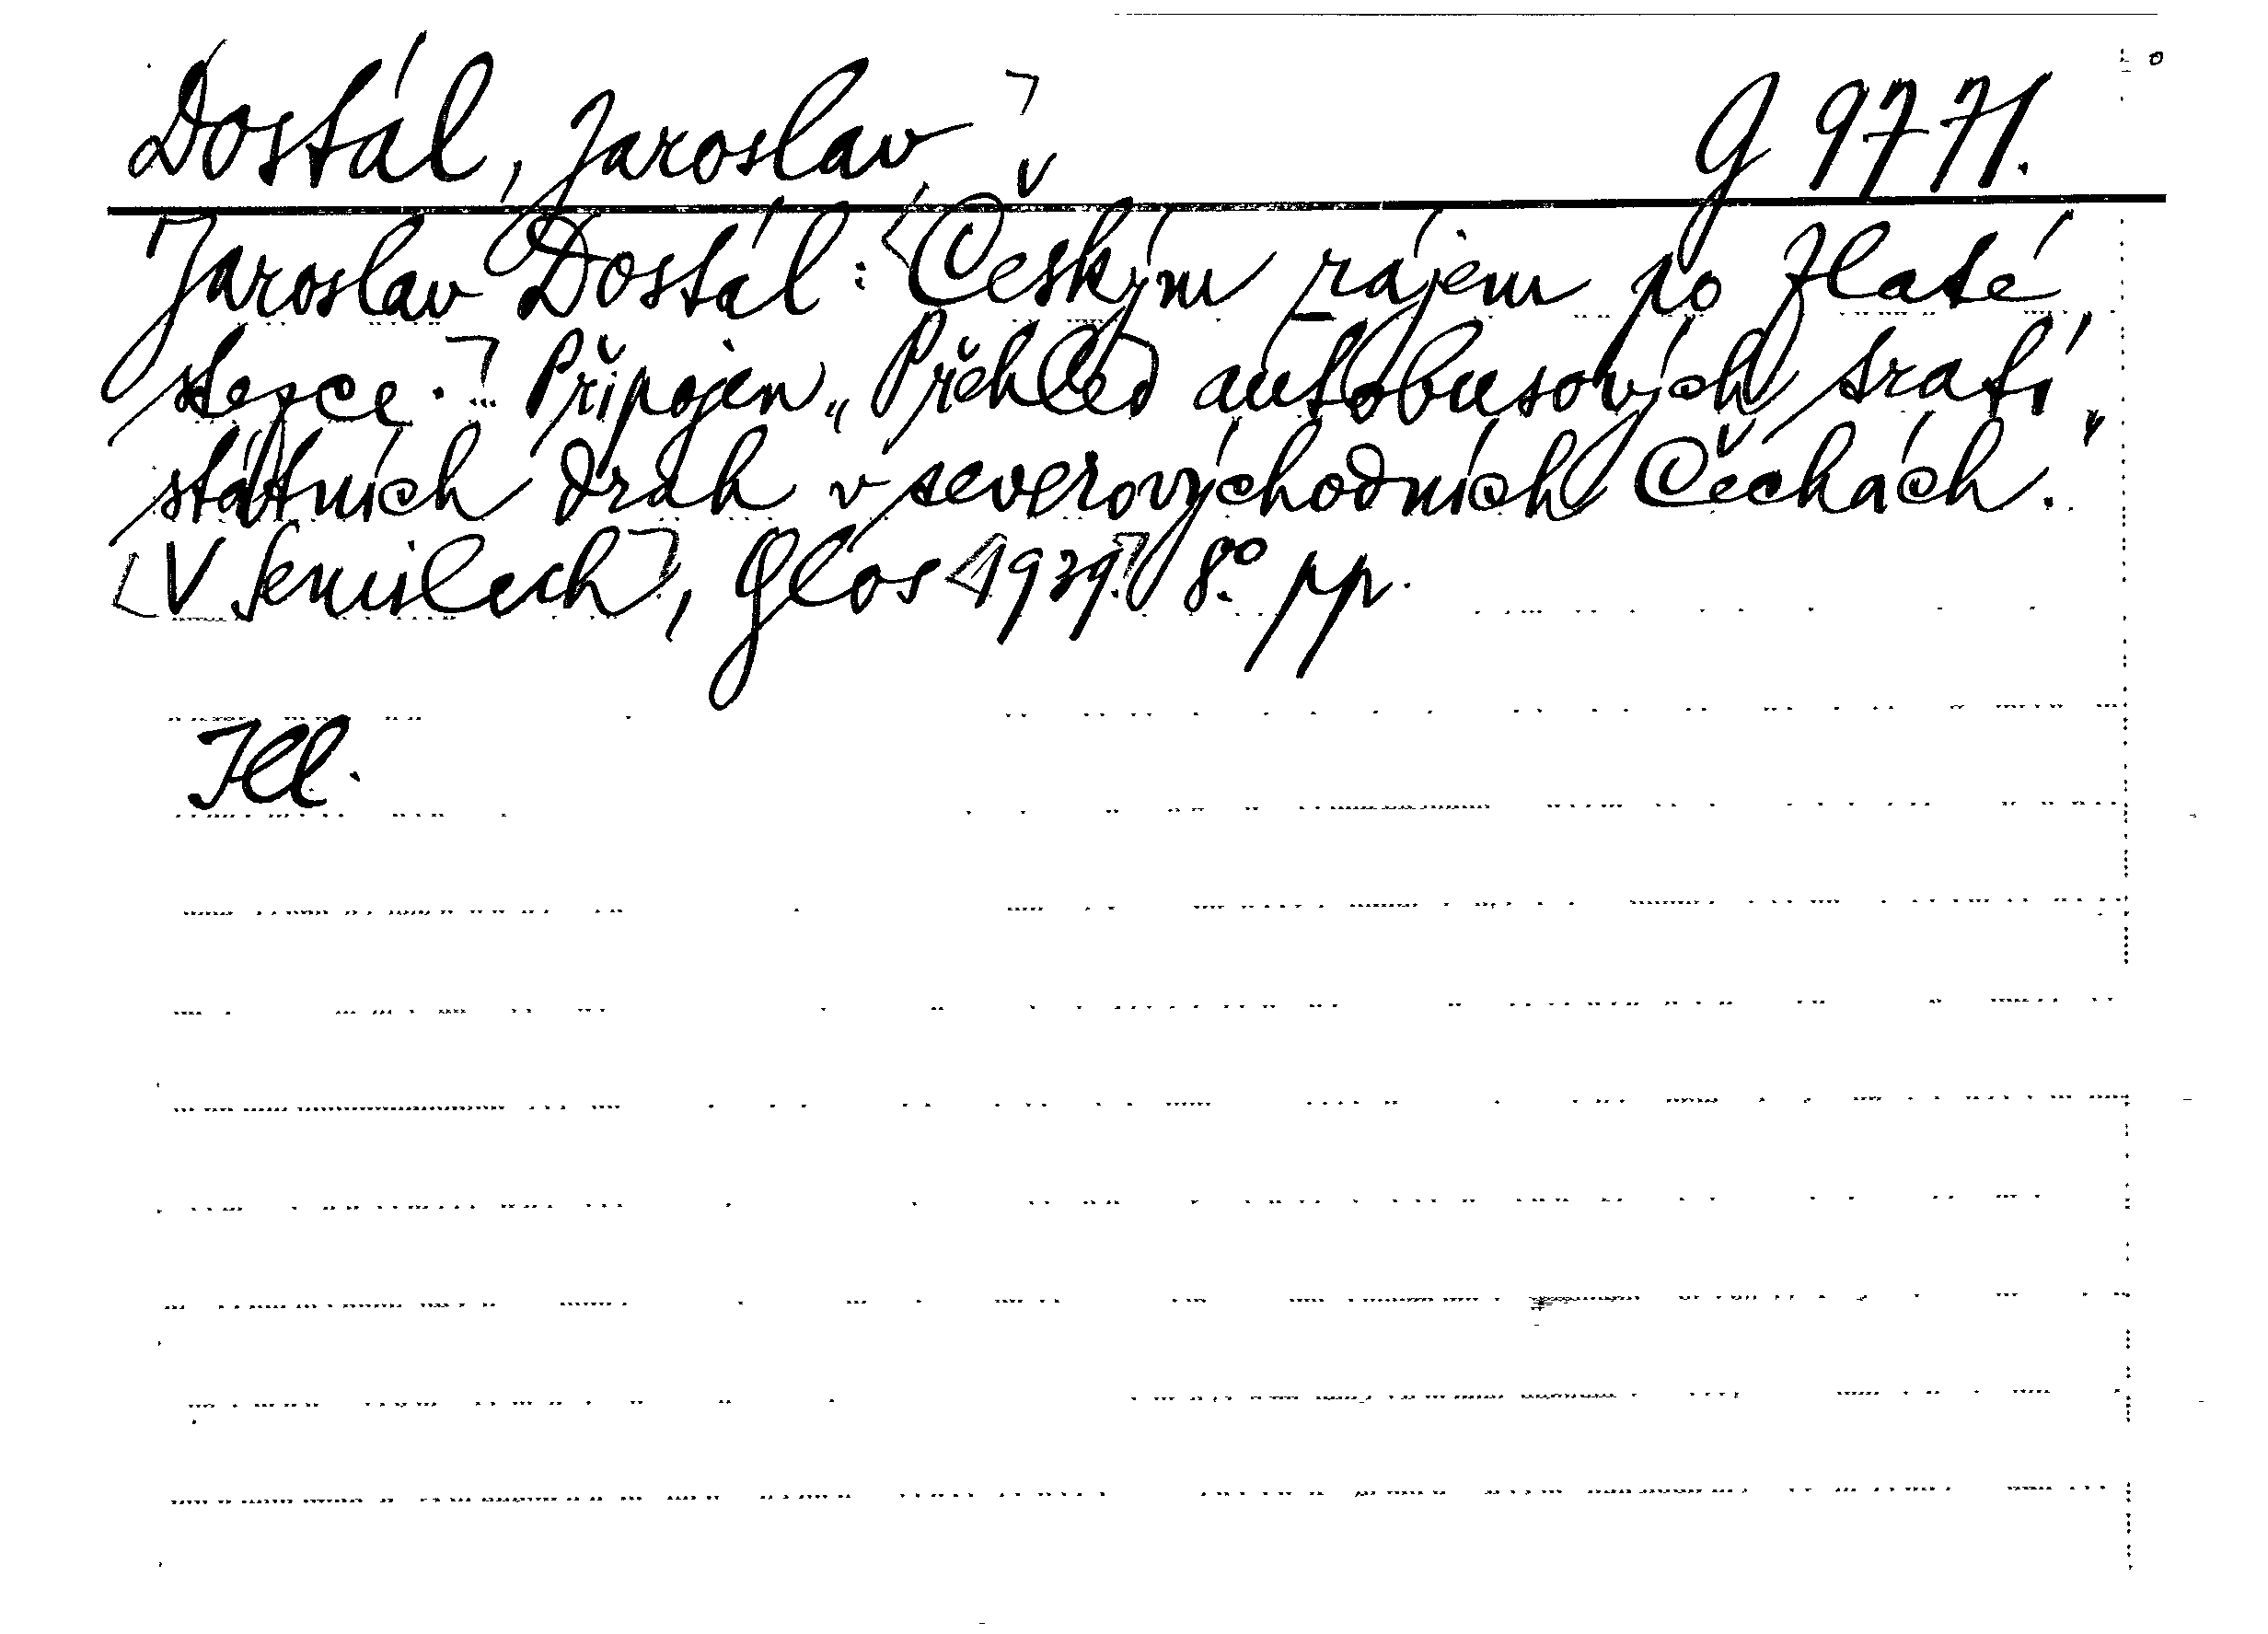 Dostál, Jaroslav. G 9771.
Jaroslav Dostál: Českým rájem po Zlaté
stezce. Připojen „Přehled autobusových tratí
státních drah v severovýchodních Čechách.“
V Semilech, Glos 1939. 8° pp.
Ill.